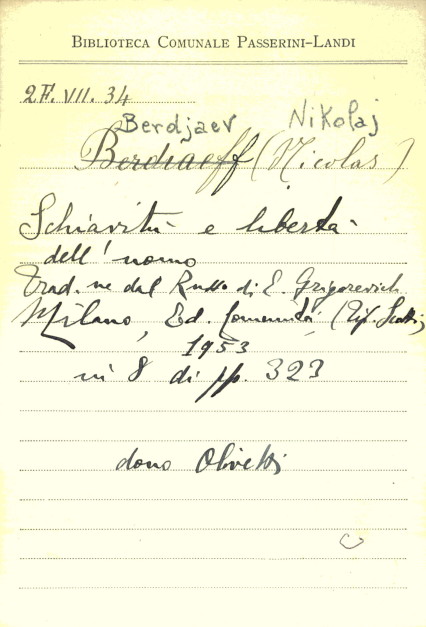 BIBLIOTECA COMUNALE PASSERINI-LANDI
2F. VII. 34
Berdjaev Nikolaj
Berdiaeff (Nicolas)
Schiavitù e libertà
dell'uomo
Trad.ne dal Russo di E. Grigorevich
Milano, Ed. Comunità (Tip.
1953
in 8 di pp. 323
dono Olivetti